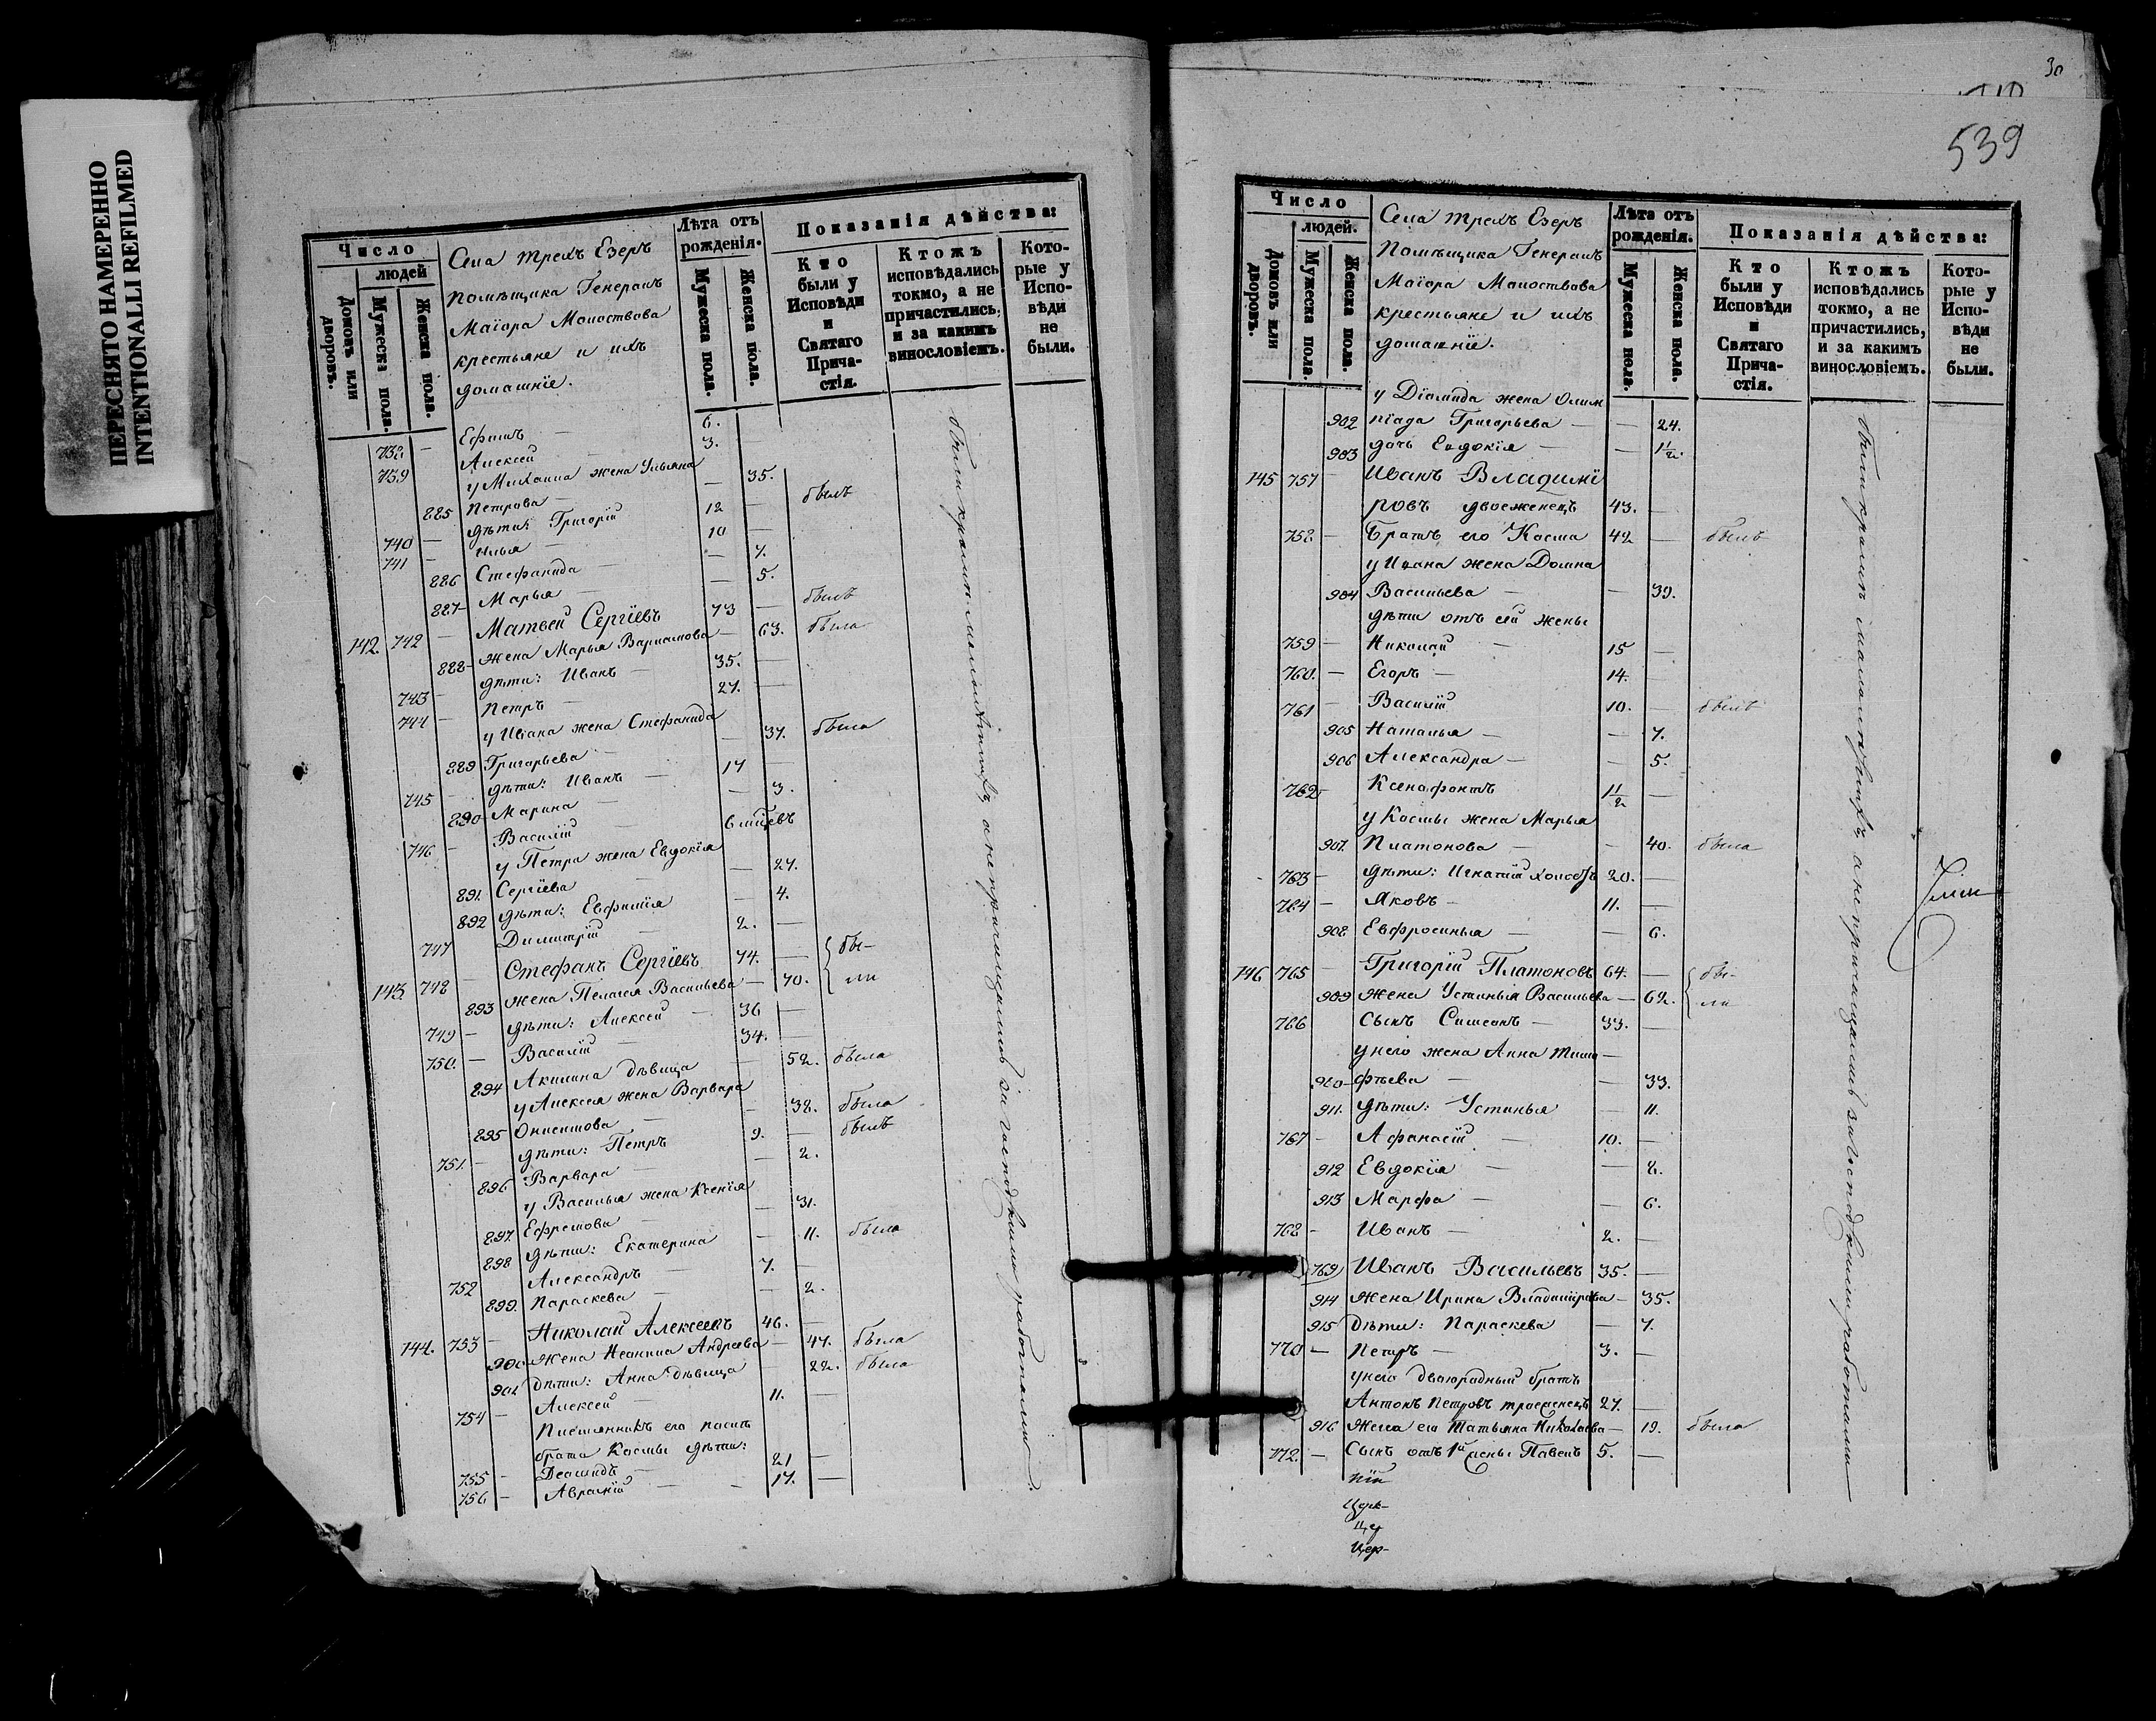 ПЕРЕСНЯТО НАМЕРЕННО
INTENTIONALLI REFILMED
Число
людей
Домовъ или дворовъ.
Мужеска пола.
Женска пола.
Села трехъ Езеръ
помѣщика Генералъ
Маіора Молоствова
крестьяне и ихъ
домашніе.
Лѣта отъ рожденія.
Мужеска пола.
Женска пола.
Показанія дѣйства:
Кто были у Исповѣди и Святаго Причастія.
Ктожъ исповѣдались токмо, а не причастились, и за какимъ винословіемъ.
Которые у Исповѣди не были.
738 — Ефимъ — 6.
739 Алексей — 3.
у Михаила жена Ульяна
885 Петрова — — 35.
740 — дѣти: Григорій 12 — былъ
741 — Илья — 10
886 Стефанида — — 7.
887 — Марья — — 5.
142 742 — Матвей Сергіевъ 73 — былъ
888 — жена Марья Варламова — 63. была
743 — дѣти: Иванъ — 35. —
744 — Петръ — 27. —
у Ивана жена Стефанида
889 Григорьева — — 37. была
745 — дѣти: Иванъ — 17 —
890 — Марина — — 3.
746 — Василій — 6 мцевъ
у Петра жена Евдокія
891. Сергіева — — 27.
892 дѣти: Евфимія — 4.
747 Димитрій — 2. —
143. 748 — Стефанъ Сергіевъ 74. — бы-
893 жена Пелагея Васильева — 70. ли
749 — дѣти: Алексей — 36 —
750. — Василій — 34. —
894 Акилина дѣвица — 52. была
у Алексея жена Варвара
895 Онисимова — — 38. была
751. — дѣти: Петръ 9. — былъ
896 Варвара — — 2.
у Василья жена Ксенія
897. Ефремова — — 31.
898 дѣти: Екатерина — 11. была
752 Александръ — 7. —
899. Параскева — — 2.
144. 753 — Николай Алексеевъ 46. —
900 жена Неонила Андреева — 47. была
901 дѣти: Анна дѣвица — 22. была
754 — Алексей — 11. —
Племянникъ его послѣ
брата Космы дѣти:
755 — Деомидъ — 21 —
756 — Авраамій — 17. —
были кромѣ малолѣтнихъ, а не причащались за господскими работами
30
539
Число
людей.
Домовъ или дворовъ.
Мужеска пола.
Женска пола.
Села трехъ Езеръ
Помѣщика Генералъ
Маіора Молоствова
крестьяне и ихъ
домашніе.
Лѣта отъ рожденія.
Мужеска пола.
Женска пола.
Показанія дѣйства:
Кто были у Исповѣди и Святаго Причастія.
Ктожъ исповѣдались токмо, а не причастились, и за какимъ винословіемъ.
Которые у Исповѣди не были.
у Діомида жена Олим
902 піада Григорьева — — 24.
903 дочь Евдокія — — 1½.
145 757 — Иванъ Владимі
ровъ двоеженецъ 43. —
758. — Братъ его Косма 42 — былъ
у Ивана жена Домна
904 Васильева — — 39.
дѣти отъ сей жены
759 — Николай — 15 —
760. — Егоръ — 14. —
761 — Василій 10. — былъ
905 Наталья — — 7.
906 Александра — — 5.
762 — Ксенофонтъ 1½ —
у Космы жена Марья
907. Платонова — — 40. была
763 — дѣти: Игнатій холостъ 20. —
764 — Яковъ — 11. —
908 Евфросинья — — 6.
146. 765 — Григорій Платоновъ 64. — бы-
909 жена Устинья Васильева — 62. ли
766 сынъ Симеонъ — 33. —
у него жена Анна Тимо —
910 — фѣева — — 33.
911. дѣти: Устинья — 11.
767 — Афанасій — 10. —
912 Евдокія — — 8.
913 Марфа — — 6.
768 — Иванъ — 2. —
769 Иванъ Васильевъ 35. —
914 жена Ирина Владимірова — 35.
915 Дѣти: Параскева — 7.
770 — Петръ — 3. —
у него двоюродный братъ
Антонъ Петровъ троеженецъ 27. —
916 Жена его Татьяна Николаева — 19. была
772. — Сынъ отъ 1й жены Павелъ 5. —
были кромѣ малолѣтнихъ, а не причащались за господскими работами
Цер-